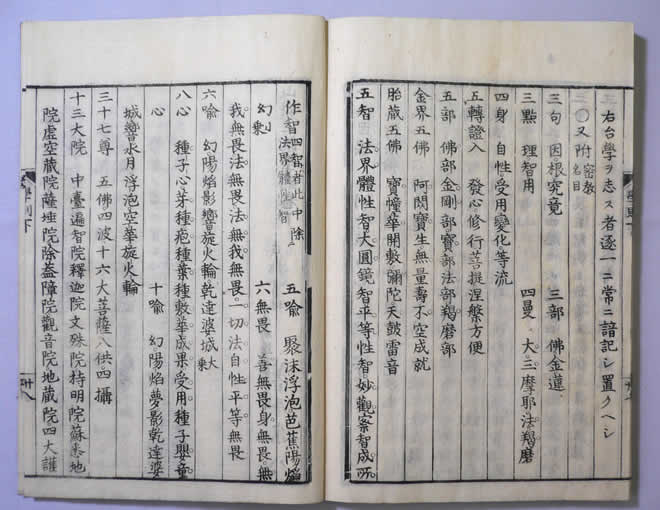 右台學ヲ志ス者逐一ニ常ニ諳記シ置クヘシ
〇又附 密教名目
三句 因根究竟 三部 佛金蓮
三點 理智用 四曼 大三摩耶法羯磨
四身 自性受用變化等流
五轉證入 發心修行菩提涅槃方便
五部 佛部金剛部寶部法部羯磨部
金界五佛 阿閦寶生無量壽不空成就
胎蔵五佛 寶幢華開敷彌陀天鼓雷音
五智 法界體性智大圓鏡智平等性智妙觀察智成所
作智 四智者此中除法界體性智 五喻 聚沫浮泡芭蕉陽焰
幻 六無畏 善無畏身無畏無
我無畏法無畏法無我無畏一切法自性平等無畏
六喻 幻陽焰影響旋火輪乾達婆城 大乘
八心 種子心芽種疱種葉種敷華成果受用種子嬰童
心 十喻 幻陽焰夢影乾達婆
城響水月浮泡空華旋火輪
三十七尊 五佛四波十六大菩薩八供四攝
十三大院 中臺遍智院釋迦院文殊院持明院蘇悉地
院虚空蔵院薩埵院除蓋障院觀音院地蔵院四大護
學則下